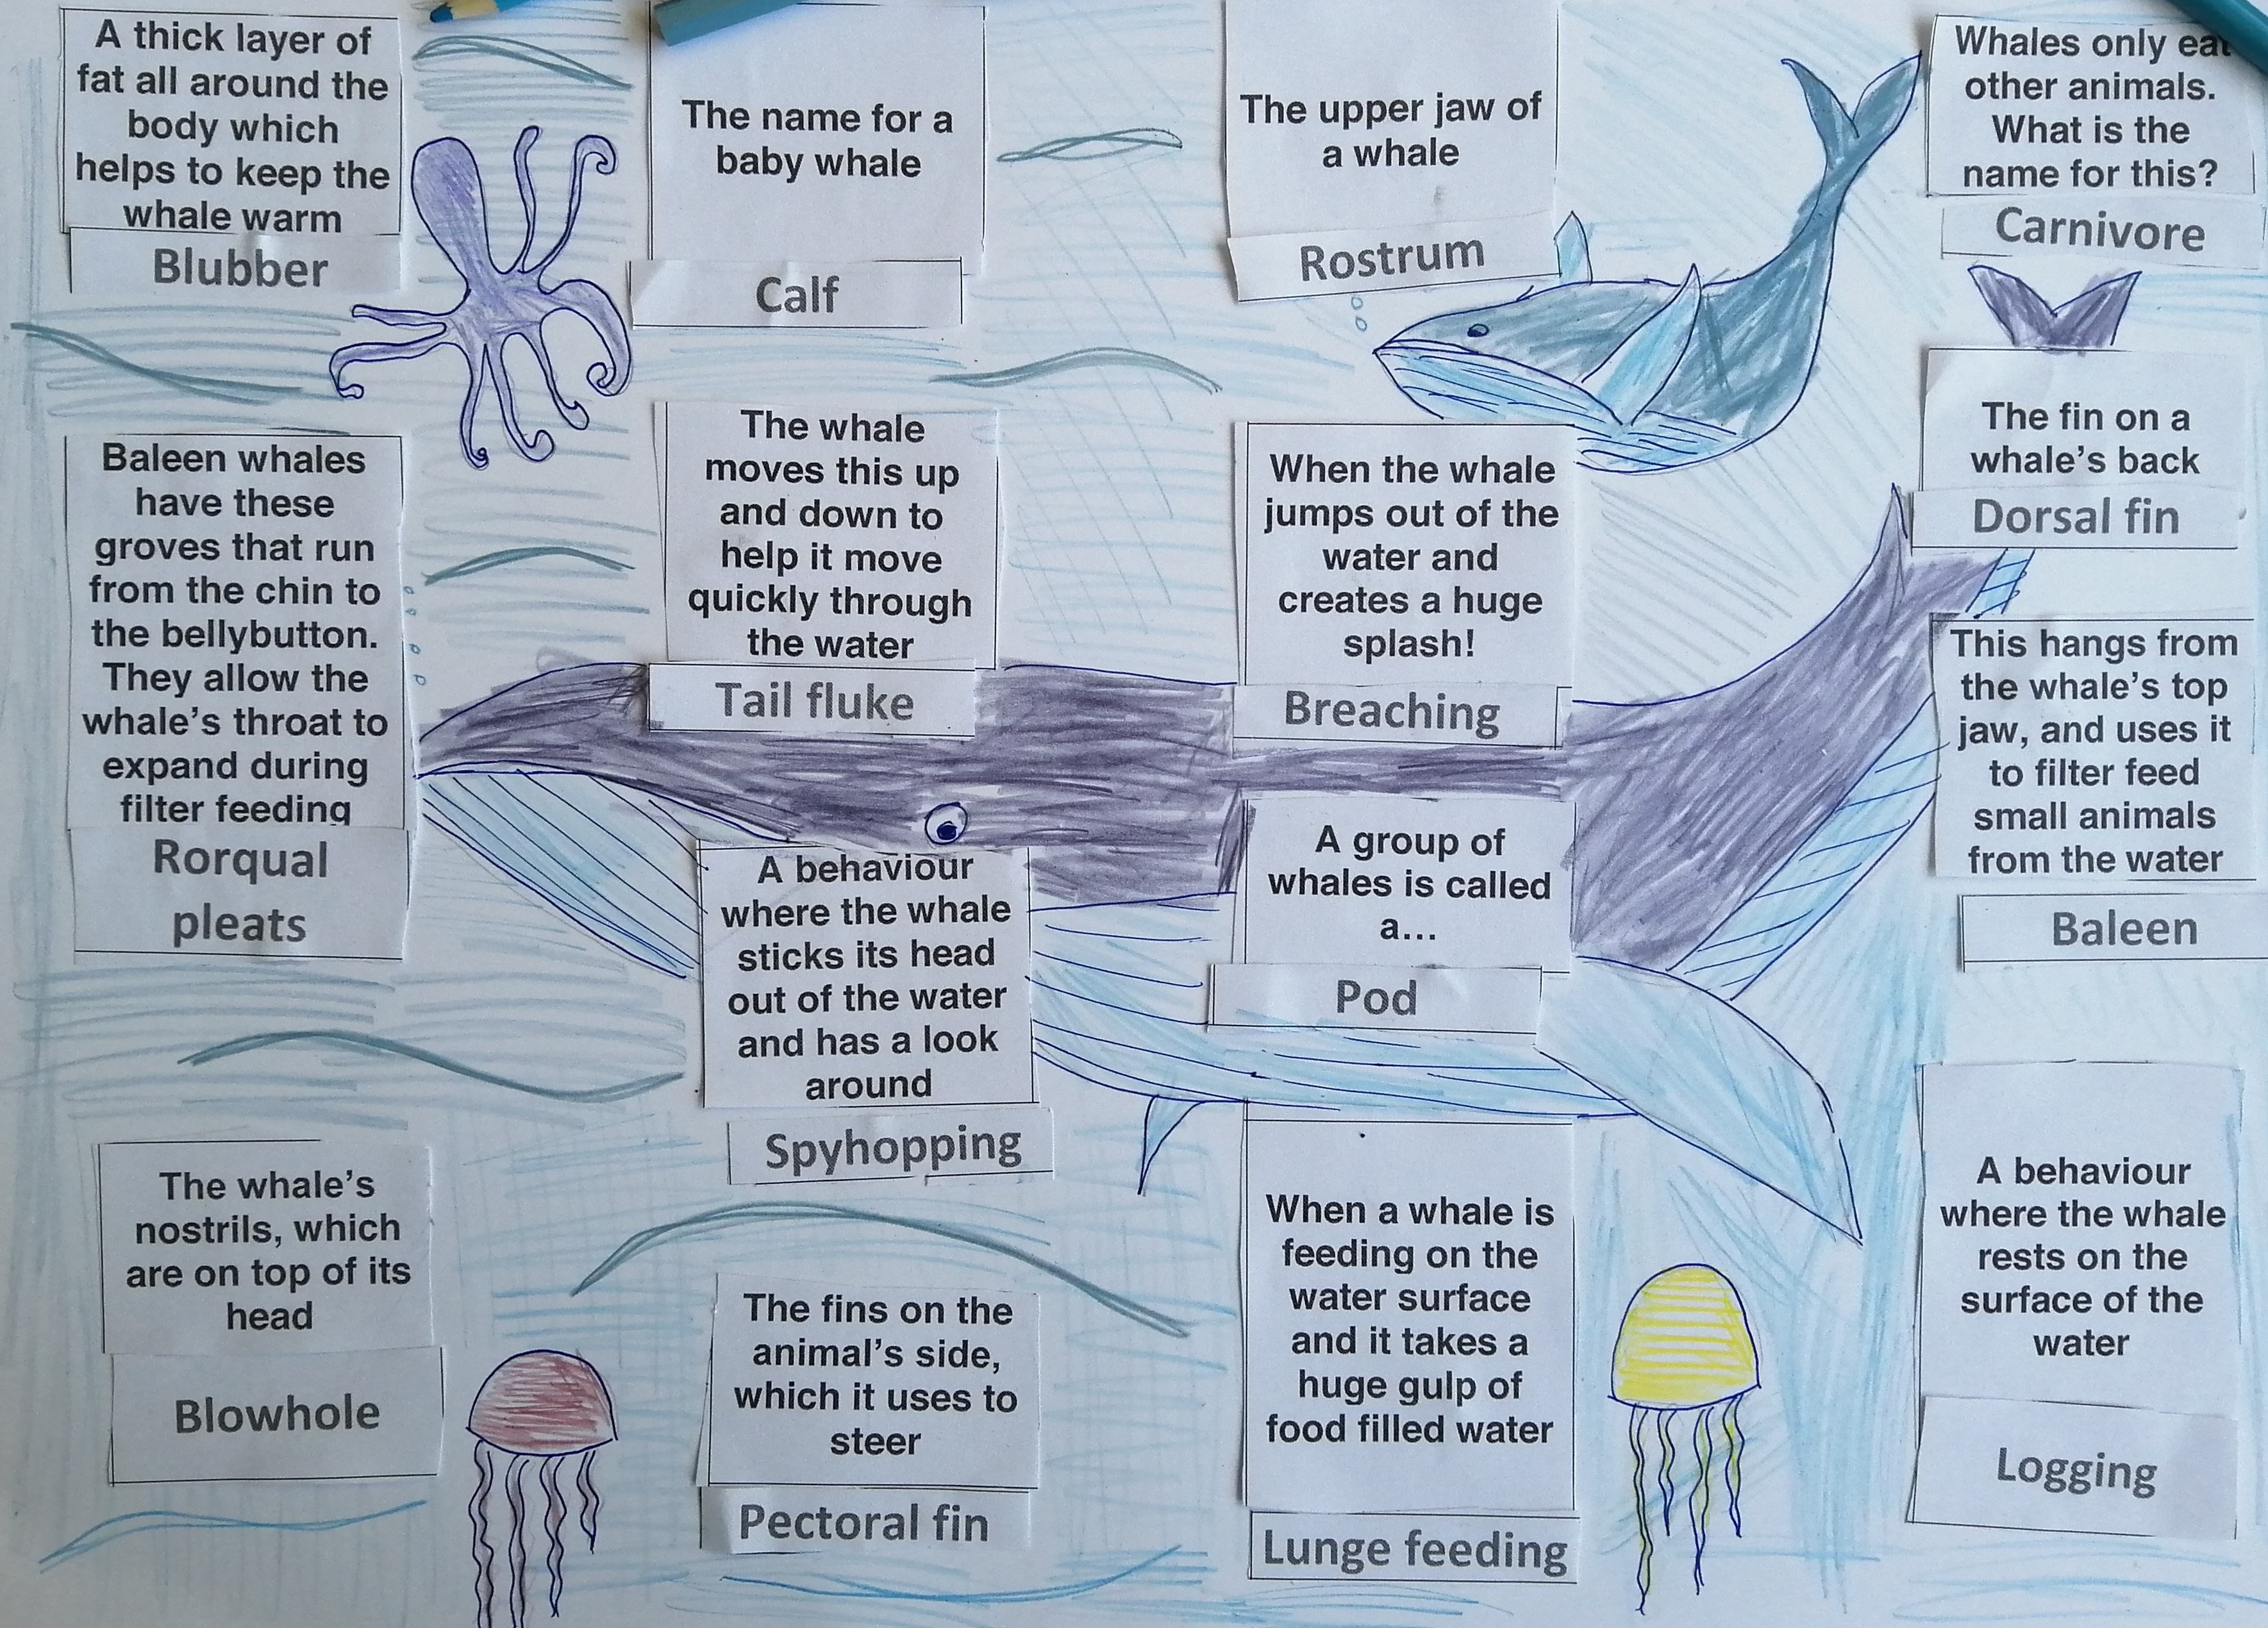 A thick layer of
fat all around the
body which
helps to keep the
whale warm
Blubber
The name for a
baby whale
Calf
The upper jaw of
a whale
Rostrum
Whales only eat
other animals.
What is the
name for this?
Carnivore
Baleen whales
have these
groves that run
from the chin to
the bellybutton.
They allow the
whale's throat to
expand during
filter feeding
Rorqual
pleats
The whale
moves this up
and down to
help it move
quickly through
the water
Tail fluke
When the whale
jumps out of the
water and
creates a huge
splash!
Breaching
The fin on a
whale's back
Dorsal fin
This hangs from
the whale's top
jaw, and uses it
to filter feed
small animals
from the water
Baleen
A behaviour
where the whale
sticks its head
out of the water
and has a look
around
Spyhopping
A group of
whales is called
a...
Pod
The whale's
nostrils, which
are on top of its
head
Blowhole
The fins on the
animal's side,
which it uses to
steer
Pectoral fin
When a whale is
feeding on the
water surface
and it takes a
huge gulp of
food filled water
Lunge feeding
A behaviour
where the whale
rests on the
surface of the
water
Logging